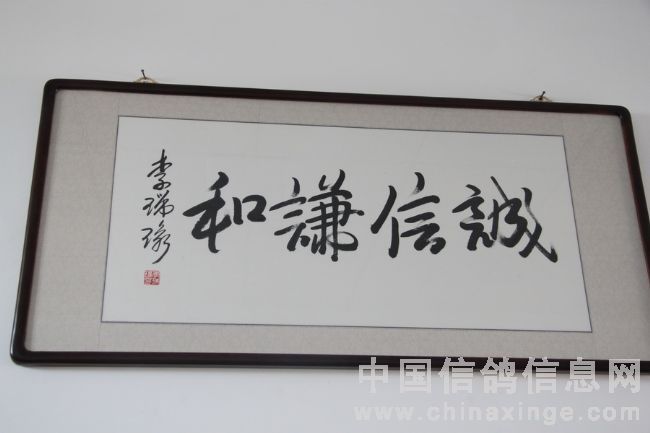 誠信謙和
李瑞
中国信鸽信息网
www.chinaxinge.com